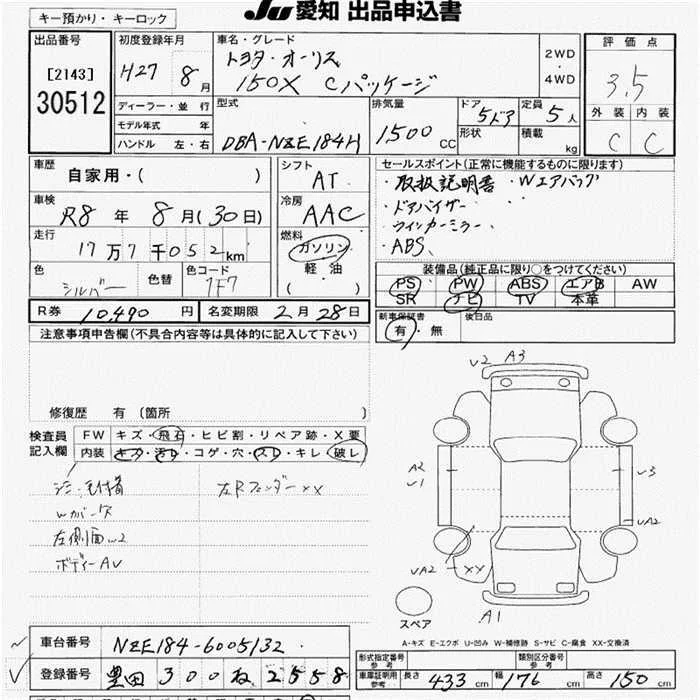 キー預かり・キーロック
JU 愛知 出品申込書
出品番号
[2143]
30512
初度登録年月
H27 8月
ディーラー・並行
モデル年式 年
ハンドル 左・右
車名・グレード
トヨタ・オーリス
150X Cパッケージ
2WD
・
4WD
型式
DBA-NZE184H
排気量
1,500 CC
ドア
5ドア
形状
定員
5人
積載
kg
評価点
3.5
外装 内装
C C
車歴
自家用・( )
車検
R8年 8月(30日)
走行
17万7千052km
色
シルバー
色替
色コード
1F7
シフト
AT
冷房
AAC
燃料
ガソリン
軽・油
( )
セールスポイント(正常に機能するものに限ります)
・取扱説明書 ・Wエアバッグ
・ドアバイザー
・ウィンカーミラー
・ABS
装備品(純正品に限り○をつけてください)
PS PW ABS エアB AW
SR ナビ TV 本革
新車保証書
有・無
後日品
R券 10,490 円
名変期限 2月28日
注意事項申告欄(不具合内容等は具体的に記入して下さい)
修復歴 有(箇所 )
検査員
記入欄
FW キズ・飛石・ヒビ割・リペア跡・X要
内装 キズ・汚レ・コゲ・穴・スレ・キレ・破レ
左RフェンダーXX
Wガーズ
左側面W2
ボディーAU
V2 A3
A2
V1
V3
VA2
VA2 XX
A1
スペア
A-キズ E-エクボ U-凹み W-補修跡 S-サビ C-腐食 XX-交換済
車台番号 NZE184-6005132
登録番号 豊田 300 ね 2558
形式指定番号
参考
類別区分番号
参考
車庫証明用
参考
長さ 433 cm 幅 176 cm 高さ 150 cm